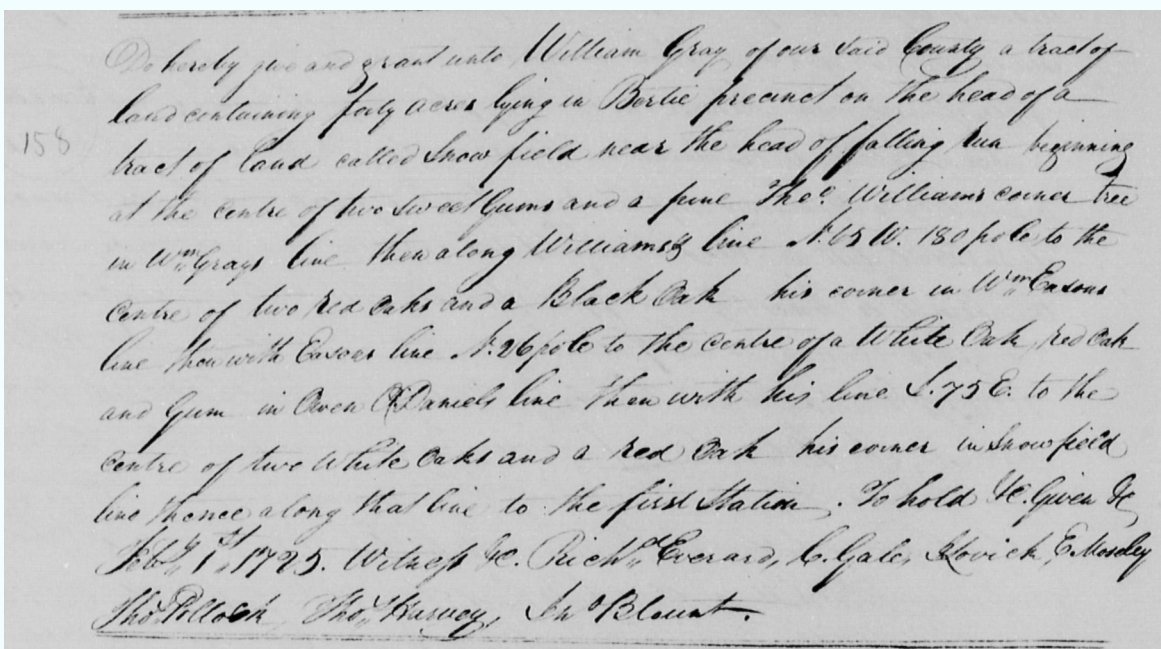 Do hereby give and grant unto William Gray of our said County a tract of
land containing forty acres lying in Bertie precinct on the head of a
158
tract of land called Snow field near the head of falling run beginning
at the centre of two Sweet Gums and a pine Tho.s Williams corner tree
in Wm Grays line then along Williams's line N.65 W. 180 pole to the
centre of two red oaks and a Black Oak his corner in Wm Easons
line then with Easons line N. 26 pole to the centre of a White Oak, red oak
and Gum in Owen O'Daniels line then with his line S. 75 E. to the
centre of two White Oaks and a red Oak his corner in Snowfield
line thence along that line to the first Station. To hold &c. Given &c
Feby 1st 1725. Witness &c. Richd Everard, C. Gale, J Lovick, E. Moseley
Tho.s Pollock, Tho.s Harvey, Jno Blount.